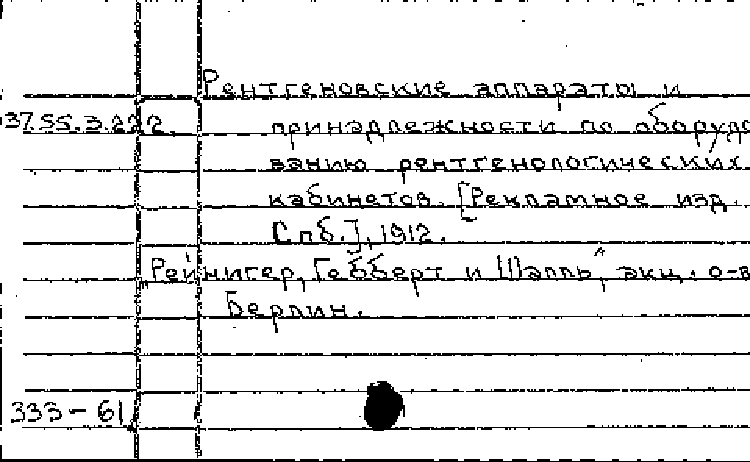 Рентгеновские аппараты и
37.55.3.222.
принадлежности по оборудо
ванию рентгенологических
кабинетов. [Рекламное изд.
Спб.], 1912.
„Рейнигер, Гебберт и Шалль", акц. о-в
Берлин.
333-61